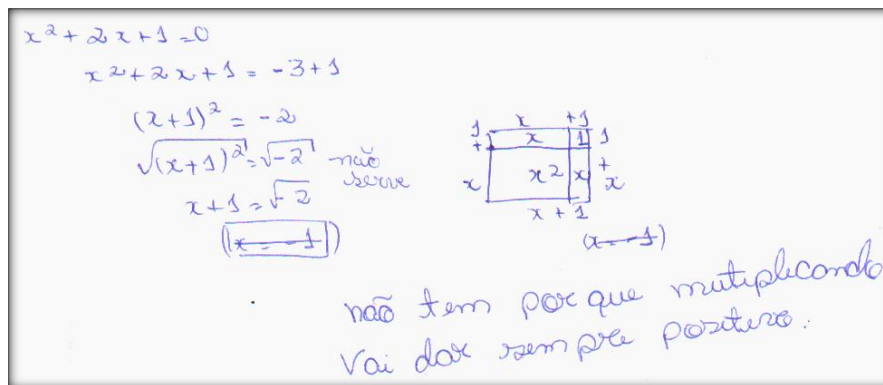 x² + 2x + 1 = 0
x² + 2x + 1 = -3 + 1
(x + 1)² = -2
√(x + 1)² = √-2 não serve
x + 1 = √-2
(x = -1)
x +1
1 x 1 1
+ +
x x² x x
x + 1
(x = -1)
não tem por que mutiplicando
Vai dar sempre positivo.